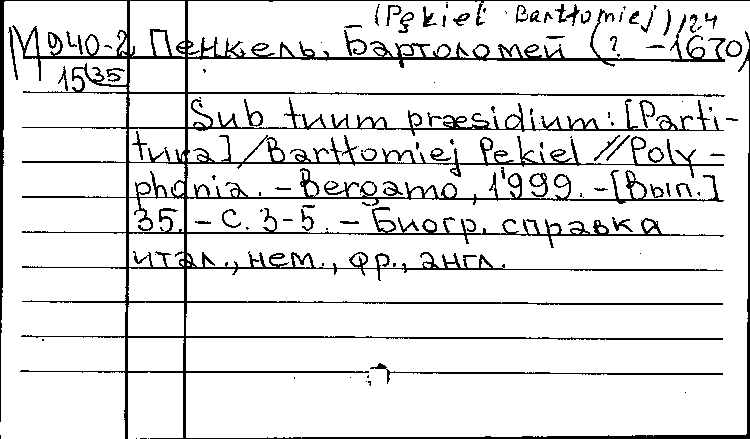 (Pękiel Bartłomiej) 124
М940-2 Пенкель, Бартоломей (? -1670)
15(35
Sub tuum præsidium: [Parti-
tura] / Bartłomiej Pekiel // Poly-
phonia. - Bergamo, 1999. - [Вып.]
35. - С. 3-5. - Биогр. справка
итал., нем., фр., англ.